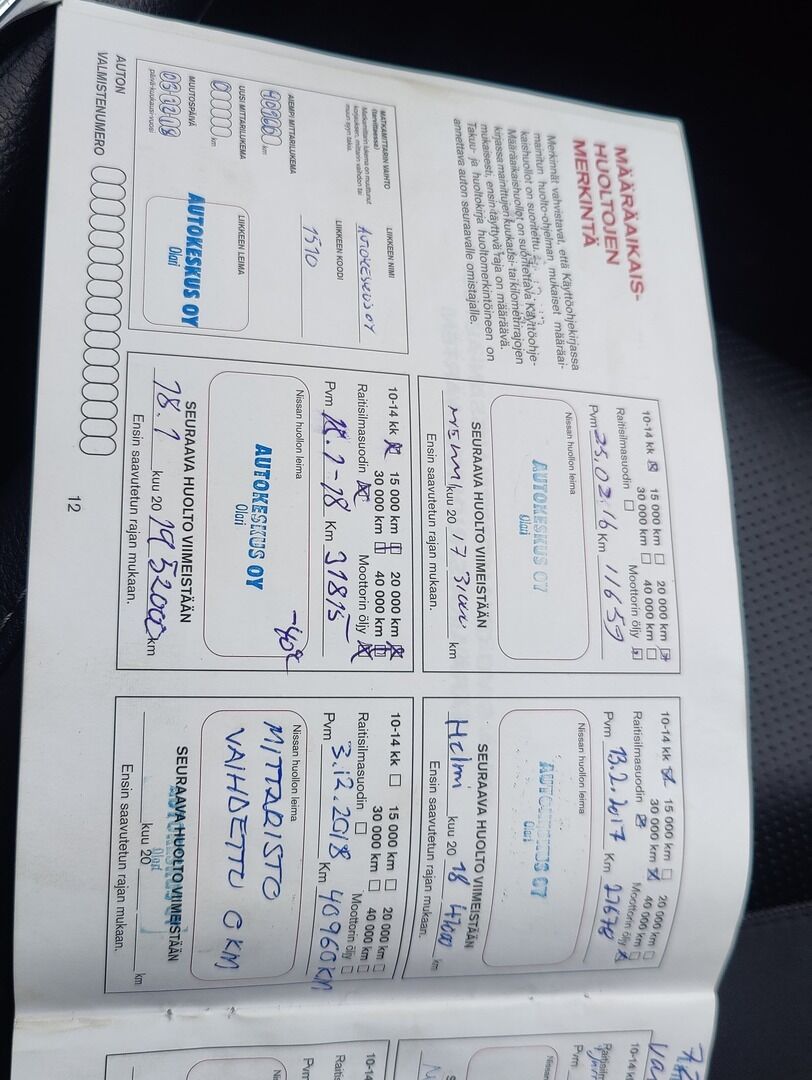 MÄÄRÄAIKAIS-
HUOLTOJEN
MERKINTÄ
Merkinnät vahvistavat, että Käyttöohjekirjassa
mainitun huolto-ohjelman mukaiset määräai-
kaishuollot on suoritettu.
Määräaikaishuollot on suoritettava Käyttöohje-
kirjassa mainittujen kuukausi- tai kilometrirajojen
mukaisesti, ensin täyttyvä raja on määräävä.
Takuu- ja huoltokirja huoltomerkintöineen on
annettava auton seuraavalle omistajalle.
10-14 kk 15 000 km 20 000 km
30 000 km 40 000 km
Raitisilmasuodin Moottorin öljy
Pvm 25.02.16 Km 11659
Nissan huollon leima
AUTOKESKUS OY
Olari
SEURAAVA HUOLTO VIIMEISTÄÄN
kuu 20 17 km
Ensin saavutetun rajan mukaan.
10-14 kk 15 000 km 20 000 km
30 000 km 40 000 km
Raitisilmasuodin Moottorin öljy
Pvm 13.2.2017 Km 27678
Nissan huollon leima
AUTOKESKUS OY
Olari
SEURAAVA HUOLTO VIIMEISTÄÄN
Helmi kuu 20 18 47000 km
Ensin saavutetun rajan mukaan.
MATKAMITTARIN VAIHTO
(tarvittaessa)
Matkamittarin lukema on muuttunut
korjauksen, mittarin vaihdon tai
muun syyn takia.
LIIKKEEN NIMI
AUTOKESKUS OY
AIEMPI MITTARILUKEMA
km
LIIKKEEN KOODI
1510
UUSI MITTARILUKEMA
0 km
LIIKKEEN LEIMA
AUTOKESKUS OY
Olari
MUUTOSPÄIVÄ
03 12 08
päivä-kuukausi-vuosi
AUTON
VALMISTENUMERO
10-14 kk 15 000 km 20 000 km
30 000 km 40 000 km
Raitisilmasuodin Moottorin öljy
Pvm 18.1-18 Km 31815
Nissan huollon leima
-40c
AUTOKESKUS OY
Olari
SEURAAVA HUOLTO VIIMEISTÄÄN
18.1 kuu 20 19 52000 km
Ensin saavutetun rajan mukaan.
10-14 kk 15 000 km 20 000 km
30 000 km 40 000 km
Raitisilmasuodin Moottorin öljy
Pvm 3.12.2018 Km 40960 KM
Nissan huollon leima
MITTARISTO
VAIHDETTU 0 KM
SEURAAVA HUOLTO VIIMEISTÄÄN
AUTOKESKUS OY
Olari
kuu 20 km
Ensin saavutetun rajan mukaan.
12